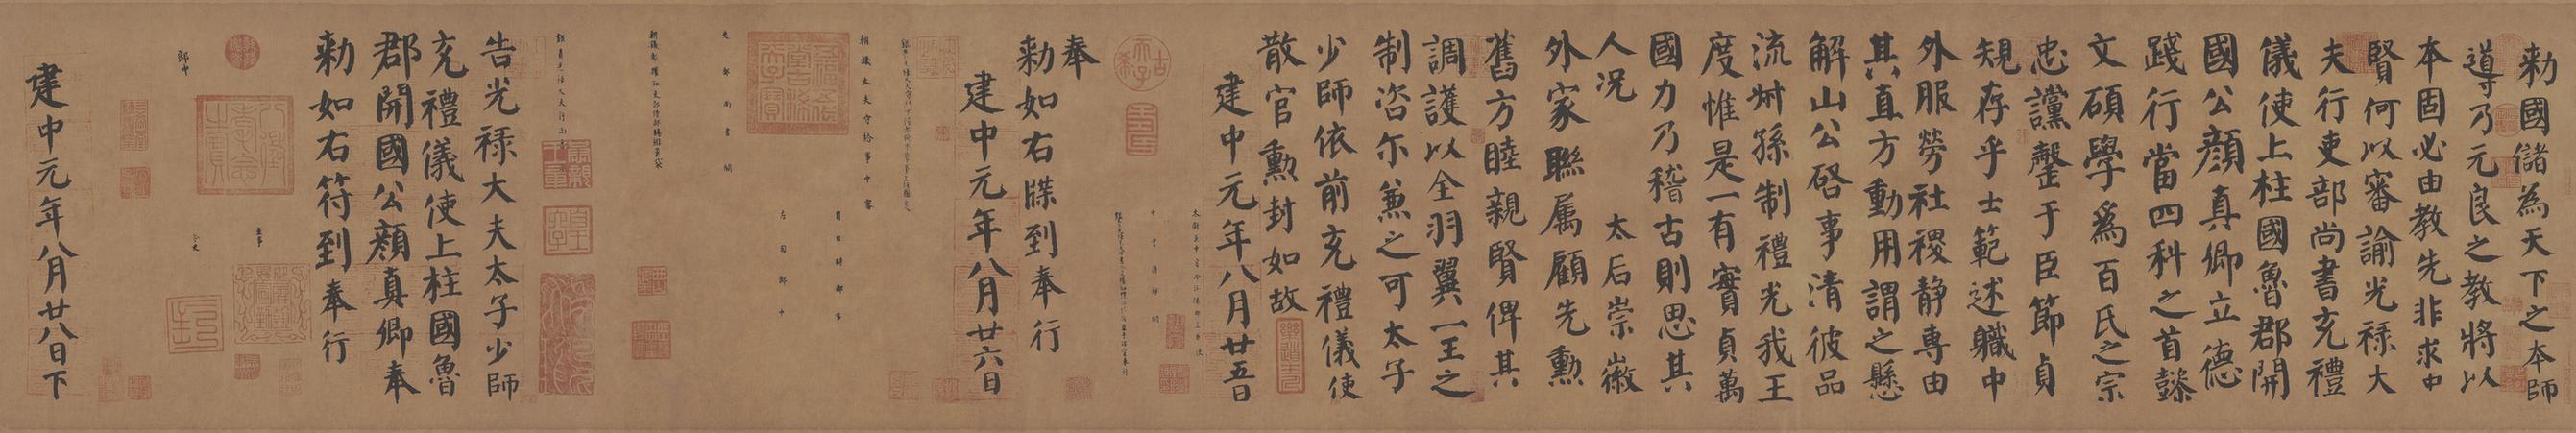 勑國儲為天下之本師
導乃元良之教將以
本固必由教先非求中
賢何以審諭光祿大
夫行吏部尚書充禮
儀使上柱國魯郡開
國公顏真卿立德
踐行當四科之首懿
文碩學為百氏之宗
忠讜罄于臣節貞
規存乎士範述職中
外服勞社稷静專由
其直方動用謂之懸
解山公啓事清彼品
流叔孫制禮光我王
度惟是一有實貞萬
國力乃稽古則思其
人况 太后崇徽
外家聯属顧先勳
舊方睦親賢俾其
調護以全羽翼一王之
制咨尔兼之可太子
少師依前充禮儀使
散官勳封如故
建中元年八月廿五日
奉
勑如右牒到奉行
建中元年八月廿六日
吏部尚書闕
告光祿大夫太子少師
充禮儀使上柱國魯
郡開國公顏真卿奉
勑如右符到奉行
郎中
建中元年八月廿八日下